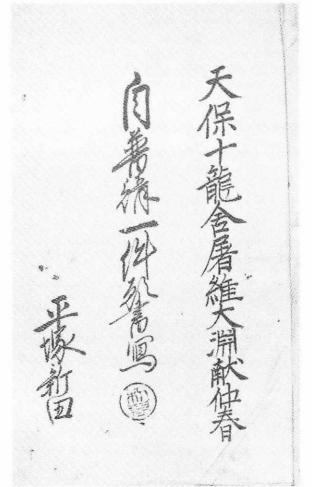 天保十龍舎屠維大淵献仲春
自普請一件願書写
平塚新田